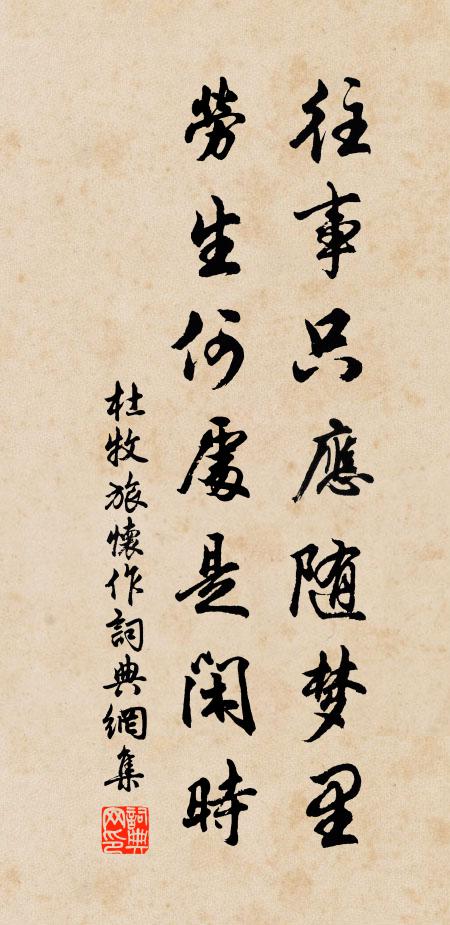 往事只應随梦里
勞生何處是閑時
杜牧旅懷作詞典網集
詞典网印